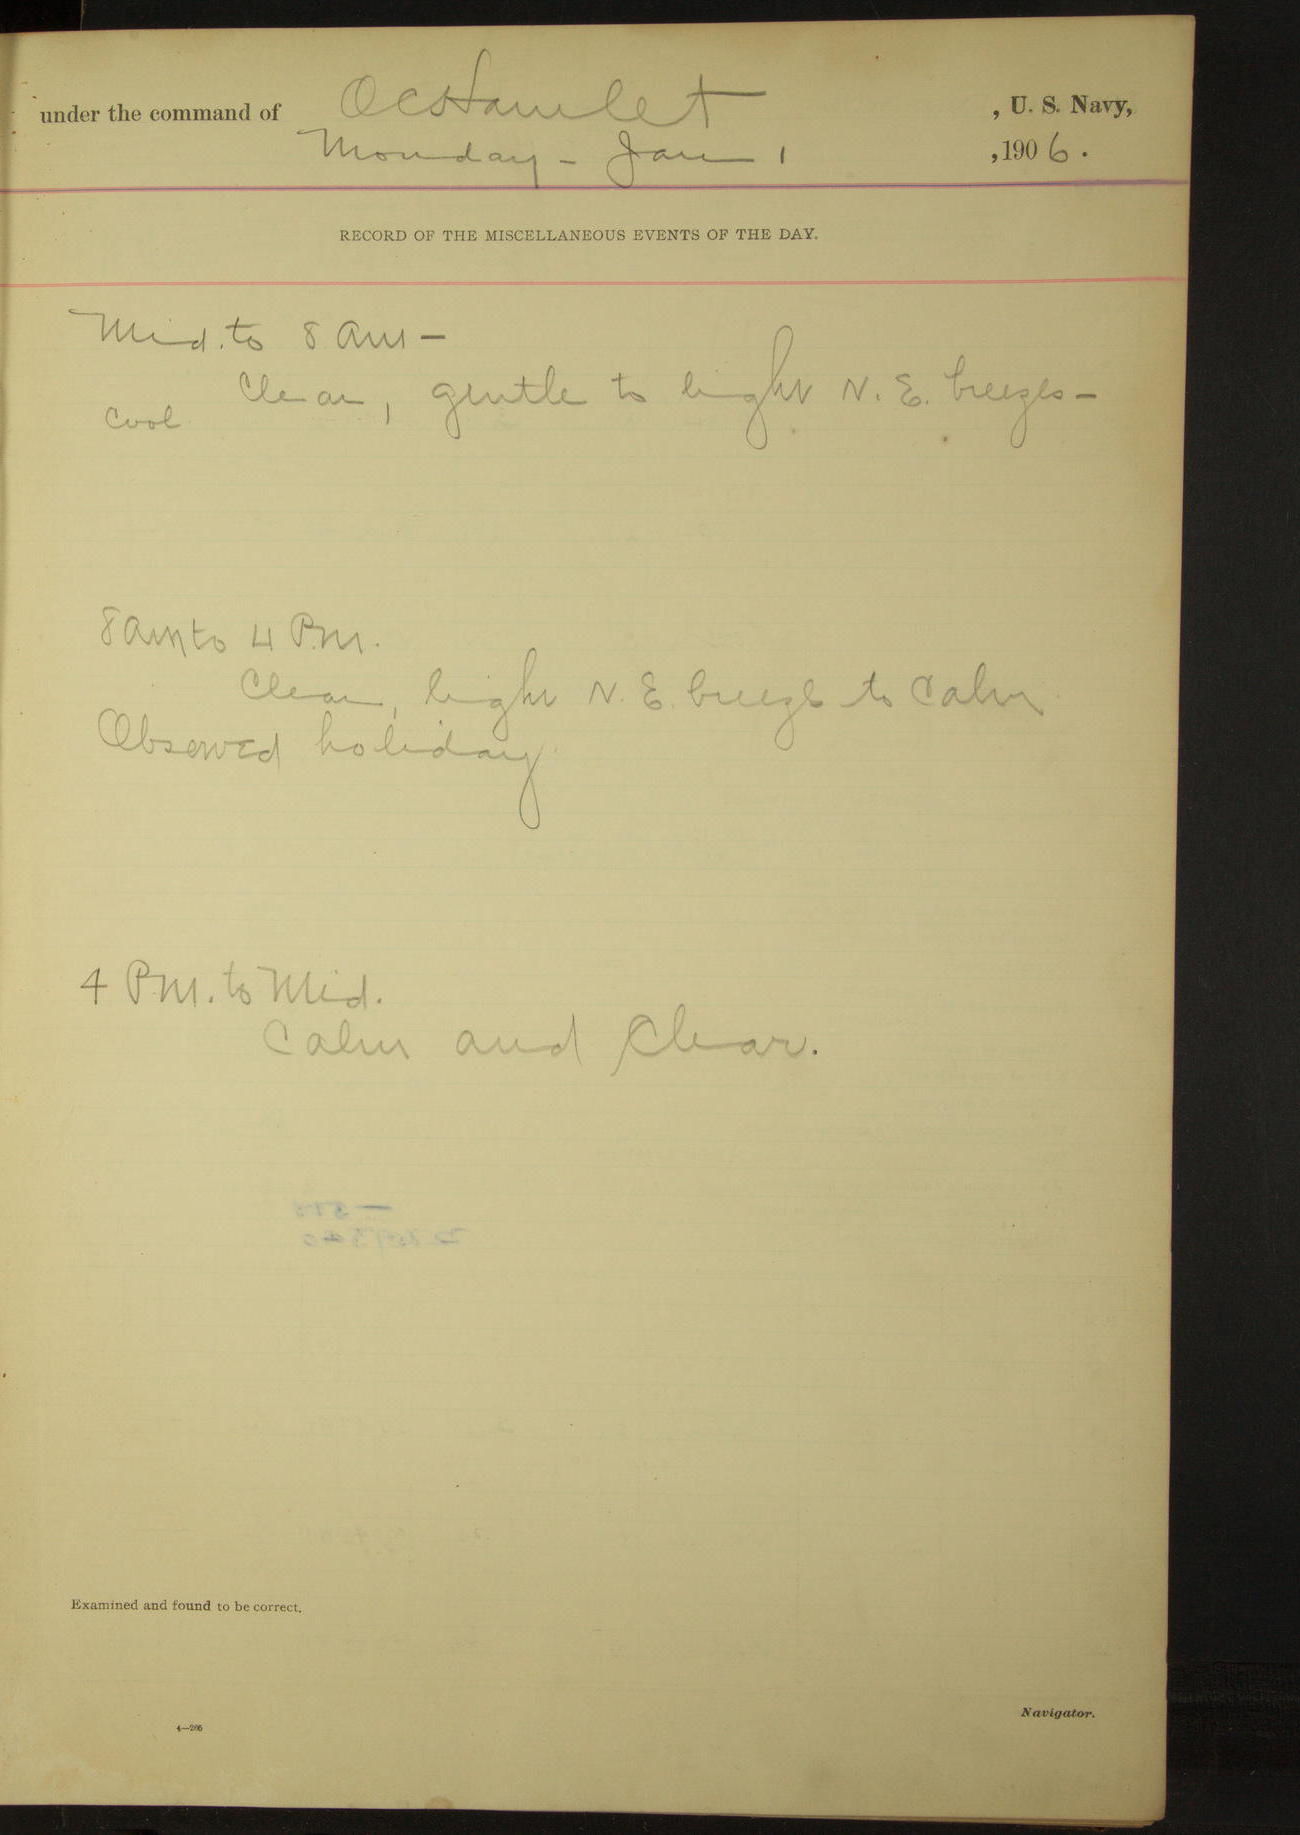 under the command of O C Hamlet, U. S. Navy,
Monday - Jan 1, 1906.
RECORD OF THE MISCELLANEOUS EVENTS OF THE DAY.
Mid. to 8 am -
Clear, gentle to light N. E. breezes -
Cool
8 am to 4 P.m.
Clear, light N. E. breeze to Calm
Observed holiday.
4 P.M. to Mid.
Calm and Clear.
Examined and found to be correct.
Navigator.
4—205